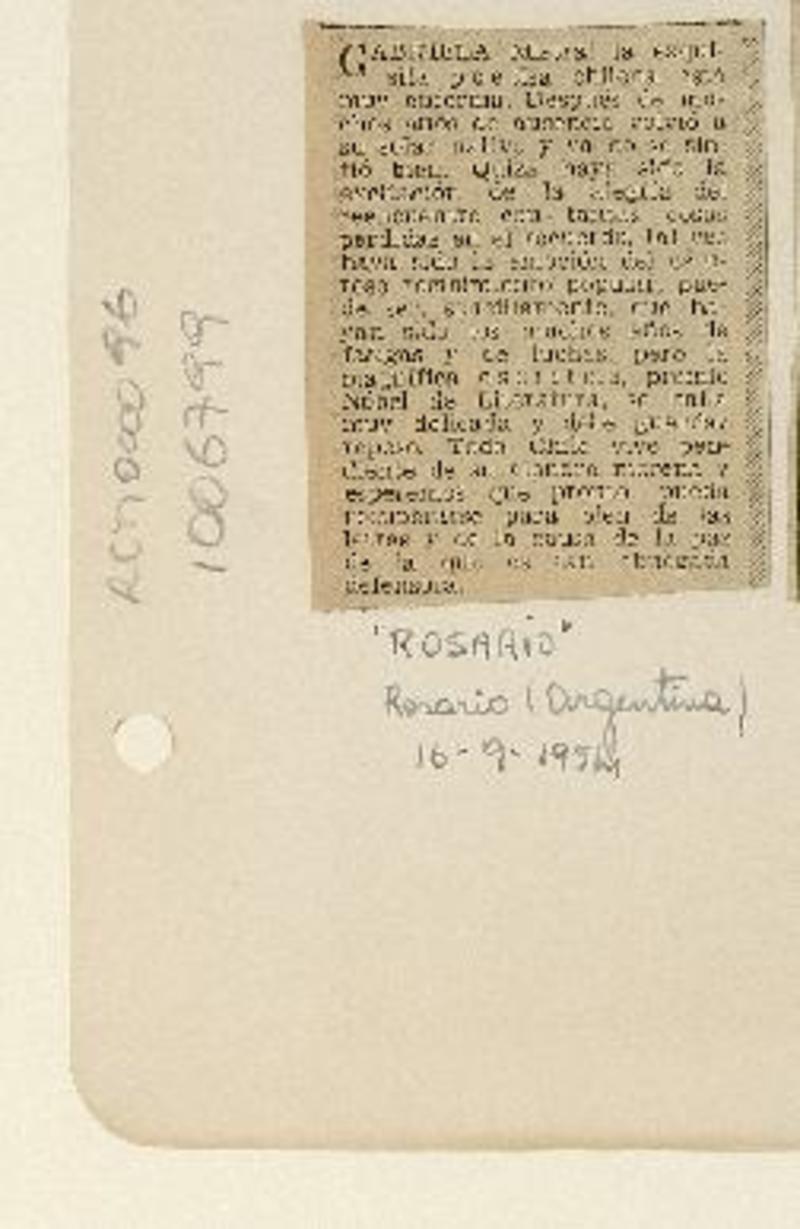 GABRIELA Mistral la exqui-
sita poetisa chilena está
muy enferma. Después de mu-
chos años de ausencia volvió a
su solar nativo y ya no se sin-
tió bien. Quizá haya sido la
excitación de la alegría del
reencuentro con tantas cosas
perdidas en el recuerdo, tal vez
haya sido la emoción del
popular, pue-
de ser, que ha-
yan sido los muchos años de
fatigas y de luchas, pero la
magnífica escritora, premio
Nóbel de Literatura, se
muy delicada y debe guardar
reposo. Todo Chile vive pen-
diente de su y
esperemos que pronto pueda
para bien de las
letras y de la causa de la paz
de la que es tan abnegada
defensora.
"ROSARIO"
Rosario (Argentina)
16-9-1954
1006799